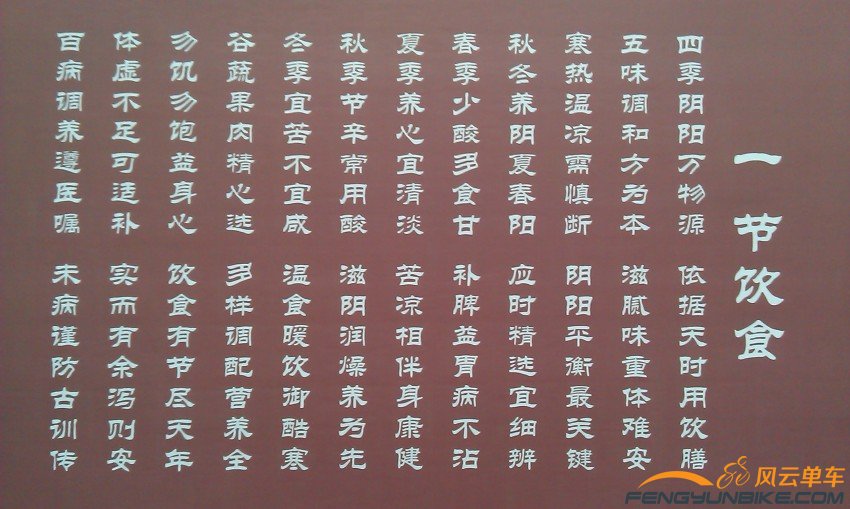 一 节饮食
四季阴阳万物源 依据天时用饮膳
五味调和方为本 滋腻味重体难安
寒热温凉需慎断 阴阳平衡最关键
秋冬养阴夏春阳 应时精选宜细辨
春季少酸多食甘 补脾益胃病不沾
夏季养心宜清淡 苦凉相伴身康健
秋季节辛常用酸 滋阴润燥养为先
冬季宜苦不宜咸 温食暖饮御酷寒
谷蔬果肉精心选 多样调配营养全
勿饥勿饱益身心 饮食有节尽天年
体虚不足可适补 实而有余泻则安
百病调养遵医嘱 未病谨防古训传
风云单车
FENGYUNBIKE.COM